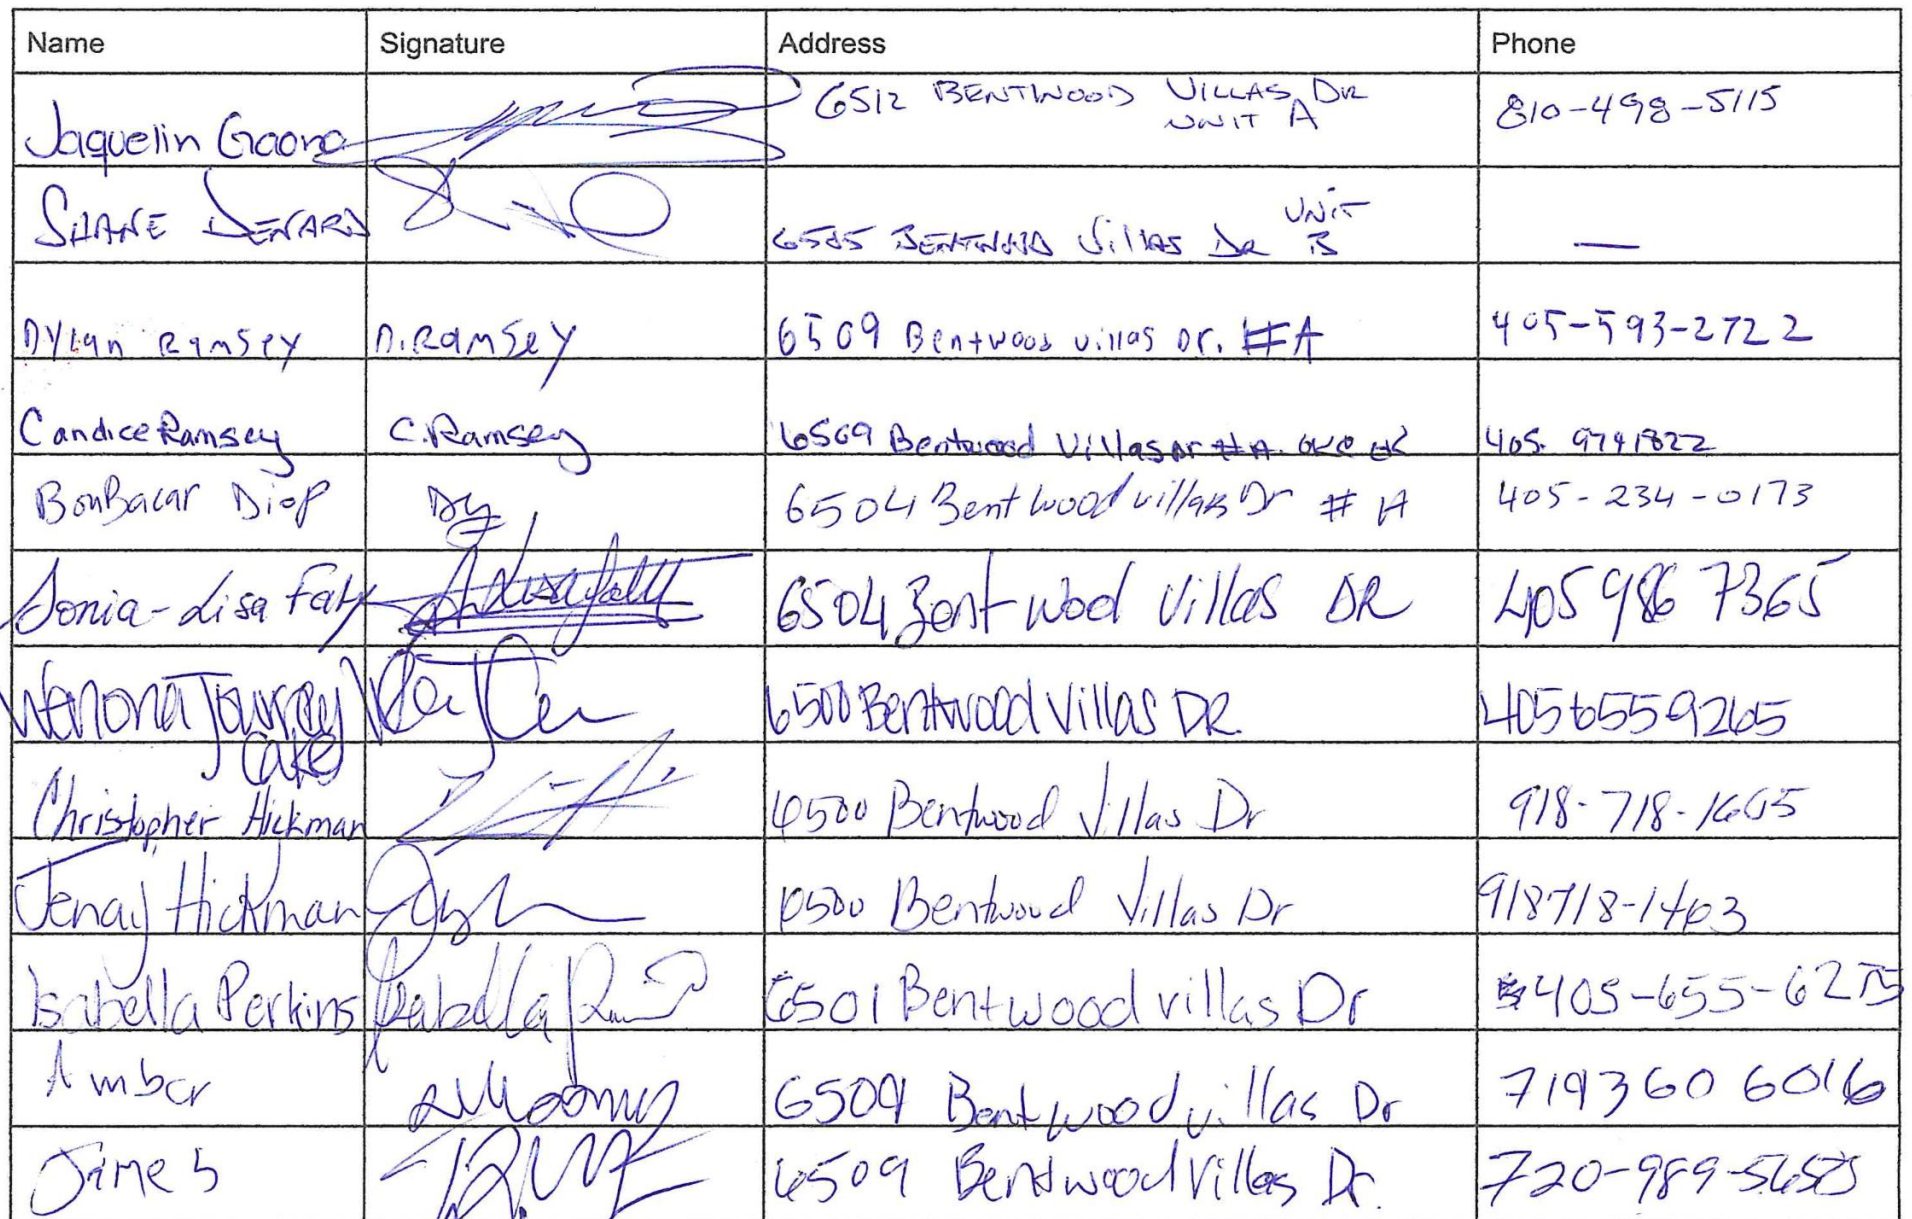 Name Signature Address Phone
Jaquelin Gaona 6512 BENTWOOD VILLAS DR UNIT A 810-498-5115
SHANE DENARD 6505 BENTWOOD Villas DR UNIT B —
Dylan Ramsey D.Ramsey 6509 Bentwood villas Dr. #A 405-593-2722
Candice Ramsey C.Ramsey 6509 Bentwood Villas Dr #A. OKC OK 405. 9741822
BouBacar Diop 6504 Bentwood villas Dr # A 405-234-0173
Sonia-Lisa Faty 6504 Bent wood Villas DR 405 986 7365
Wenona Journey Cake 6500 Bentwood Villas DR. 4056559265
Christopher Hickman 6500 Bentwood Villas Dr 918-718-1605
Jenay Hickman 6500 Bentwood Villas Dr 918718-1463
Isabella Perkins Isabella 6501 Bentwood villas Dr 405-655-6275
Amber 6509 Bentwood villas Dr 719360 6016
James 6509 Bentwood Villas Dr. 720-989-5655